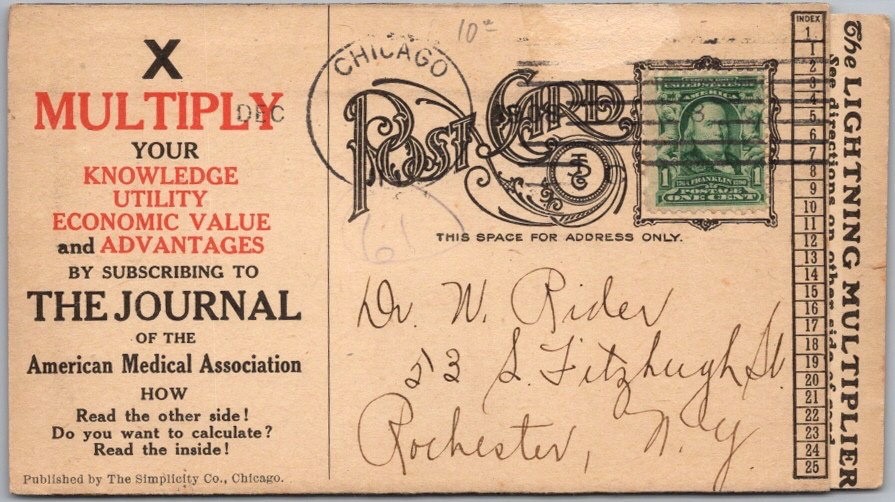 X
MULTIPLY
YOUR
KNOWLEDGE
UTILITY
ECONOMIC VALUE
and ADVANTAGES
BY SUBSCRIBING TO
THE JOURNAL
OF THE
American Medical Association
HOW
Read the other side!
Do you want to calculate?
Read the inside!
Published by The Simplicity Co., Chicago.
10¢
CHICAGO
DEC
POST CARD
1 POSTAGE 1
ONE CENT
THIS SPACE FOR ADDRESS ONLY.
61
Dr. W. Rider
53 S. Fitzhugh St.
Rochester, N. Y.
INDEX
1
1
2
3
4
5
6
7
8
9
10
11
12
13
14
15
16
17
18
19
20
21
22
23
24
25
See directions on other side of card
The LIGHTNING MULTIPLIER